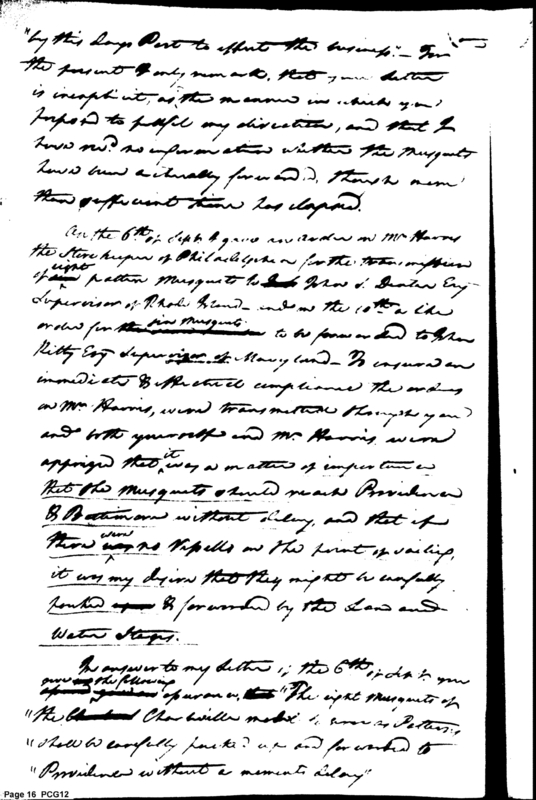 "by this days Post to effect the business" — For
the present I only remark, that your letter
is inexplicit, as the manner in which you
propose to fulfil my direction, and that I
have recd. no information whether the Musquets
have been actually forwarded, though more
than sufficient time has elapsed.
On the 6th of Septr I gave an order on Mr Harris
the Store keeper at Philadelphia for the transmission
of eight pattern Musquets to John S. Dexter Esq
Supervisor of Rhode Island — and on the 10th a like
order for six musquets to be forwarded to John
Kilty Esq Supervisor of Maryland — To insure an
immediate & effectual compliance the orders
on Mr Harris, were transmitted through you
and both yourself and Mr Harris were
apprized that it was a matter of importance
that the Musquets should reach Providence
& Baltimore without delay, and that if
there were no Vessells on the point of sailing,
it was my desire that they might be carefully
packed & forwarded by the Land and
Water Stages.
In answer to my letter of the 6th of Septr you
gave the following assurance, "The eight Musquets of
"the Charleville model to serve as Patterns
"shall be carefully packed up and forwarded to
"Providence without a moments delay"
Page 16 PCG12